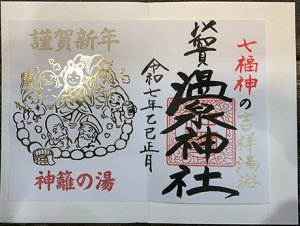 七福神の吉祥湯浴
奉賛
温泉神社
令和七年乙巳正月
謹賀新年
神籬の湯